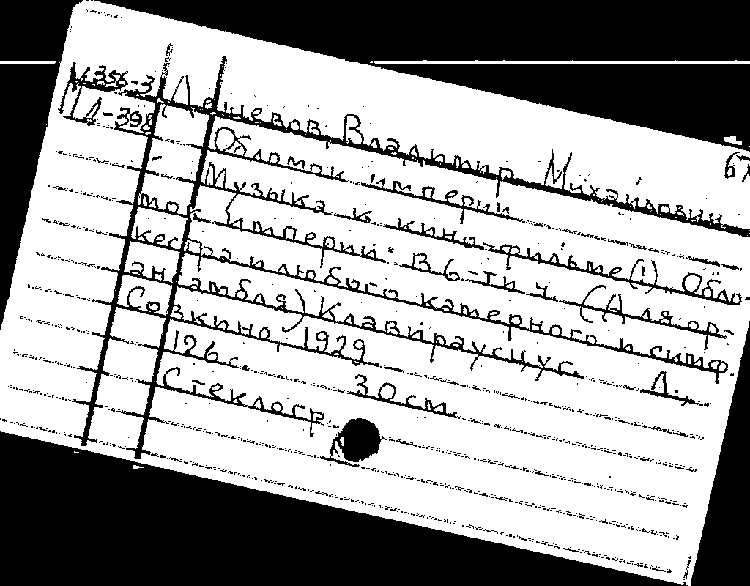 М356-3
Д-398
Дешевов, Владимир Михайлович
67
Обломок империи
Музыка к кино-фильме (!) "Обло-
мок империи" в 6-ти ч. (Для ор-
кестра и любого камерного и симф.
ансамбля) Клавираусцуг. Л.,
Совкино, 1929
126 с. 30 см.
Стеклогр.